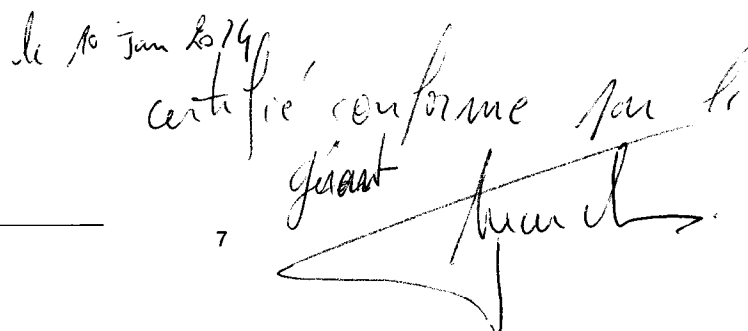 le 10 Jan 2014
certifié conforme par le
gérant
7